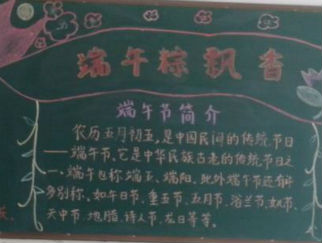 端午粽飘香
端午节简介
农历五月初五,是中国民间的传统节日
——端午节,它是中华民族古老的传统节日之
一。端午也称端五,端阳。此外端午节还有许
多别称,如午日节、重五节、五月节、浴兰节、
天中节、地腊、诗人节、龙日等等。